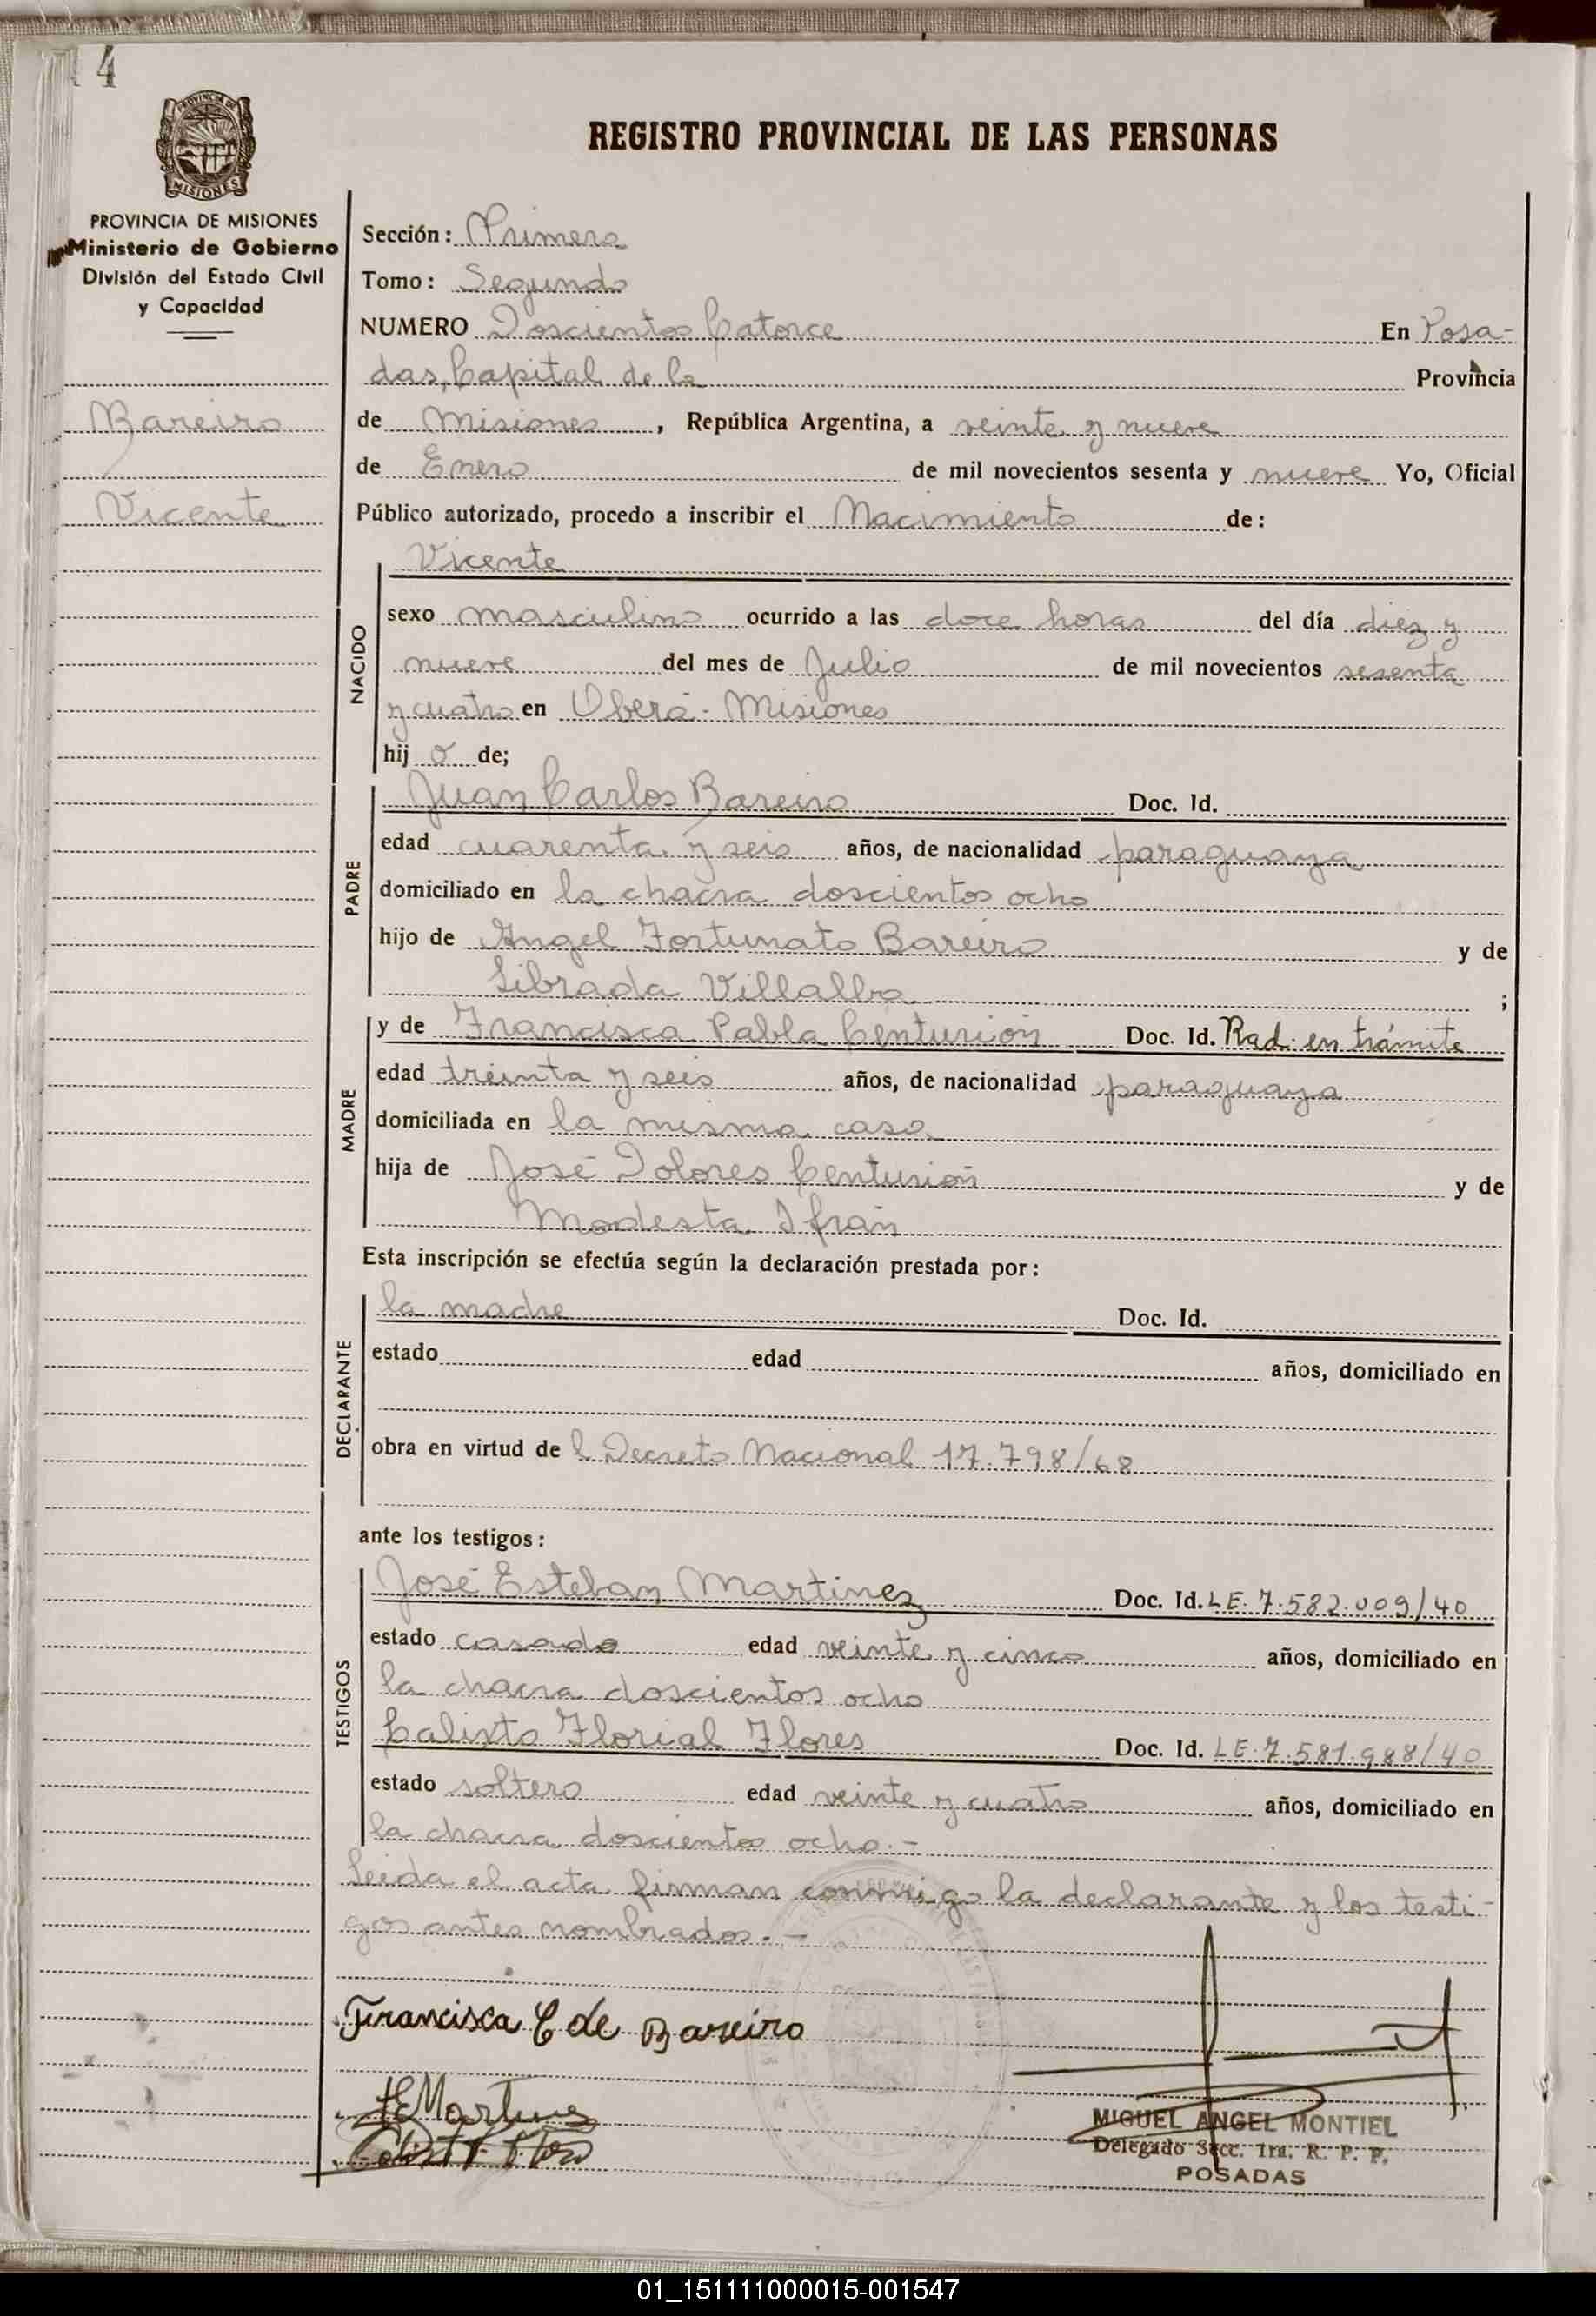 14
PROVINCIA DE
MISIONES
REGISTRO PROVINCIAL DE LAS PERSONAS
PROVINCIA DE MISIONES
Ministerio de Gobierno
División del Estado Civil
y Capacidad
Bareiro
Vicente
Sección: Primera
Tomo: Segundo
NUMERO Doscientos Catorce En Posa-
das, Capital de la Provincia
de Misiones, República Argentina, a veinte y nueve
de Enero de mil novecientos sesenta y nueve Yo, Oficial
Público autorizado, procedo a inscribir el Nacimiento de:
Vicente
NACIDO
sexo masculino ocurrido a las doce horas del día diez y
nueve del mes de Julio de mil novecientos sesenta
y cuatro en Oberá - Misiones
hij o de;
PADRE
Juan Carlos Bareiro Doc. Id.
edad cuarenta y seis años, de nacionalidad paraguaya
domiciliado en la chacra doscientos ocho
hijo de Angel Fortunato Bareiro y de
Librada Villalba ;
MADRE
y de Francisca Pabla Centurión Doc. Id. Rad. en trámite
edad treinta y seis años, de nacionalidad paraguaya
domiciliada en la misma casa
hija de José Dolores Centurión y de
Modesta Ifrán
Esta inscripción se efectúa según la declaración prestada por:
DECLARANTE
la madre Doc. Id.
estado edad años, domiciliado en
obra en virtud de l Decreto Nacional 17.798/68
ante los testigos:
TESTIGOS
José Esteban Martinez Doc. Id. LE. 7.582.009/40
estado casado edad veinte y cinco años, domiciliado en
la chacra doscientos ocho
Calixto Florial Flores Doc. Id. LE. 7.581.988/40
estado soltero edad veinte y cuatro años, domiciliado en
la chacra doscientos ocho.-
Leida el acta, firman conmigo la declarante y los testi-
gos antes nombrados.-
Francisca C de Bareiro
JEMartinez
MIGUEL ANGEL MONTIEL
Delegado Secc. 1ra. R. P. P.
POSADAS
01_151111000015-001547